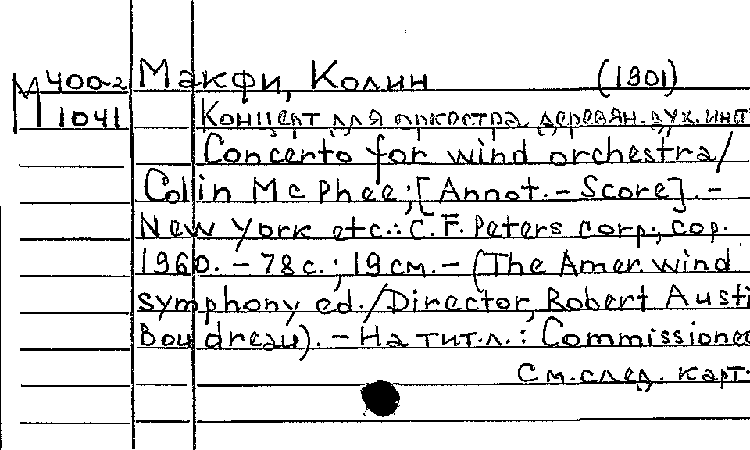 М 400-2 Макфи, Колин (1901)
1041 Концерт для оркестра деревян. дух. инст
Concerto for wind orchestra/
Collin Mc Phee; [Annot. - Score]. -
New York etc.: C. F. Peters corp., cop.
1960. - 78 с.; 19 см. - (The Amer. wind
symphony ed./Director, Robert Austi
Boudreau). - На тит. л.: Commissioned
См. след. карт.